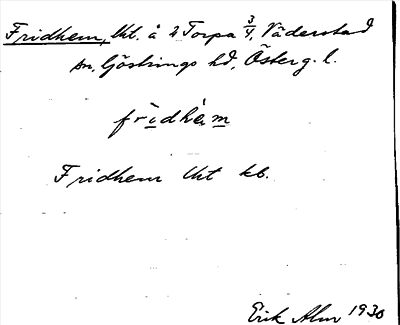 Fridhem, lht. å 2 Torpa 3/4, Väderstad
sn, Göstrings hd, Österg. l.
frìdhèm
Fridhem lht kb.
Erik Alm 1930